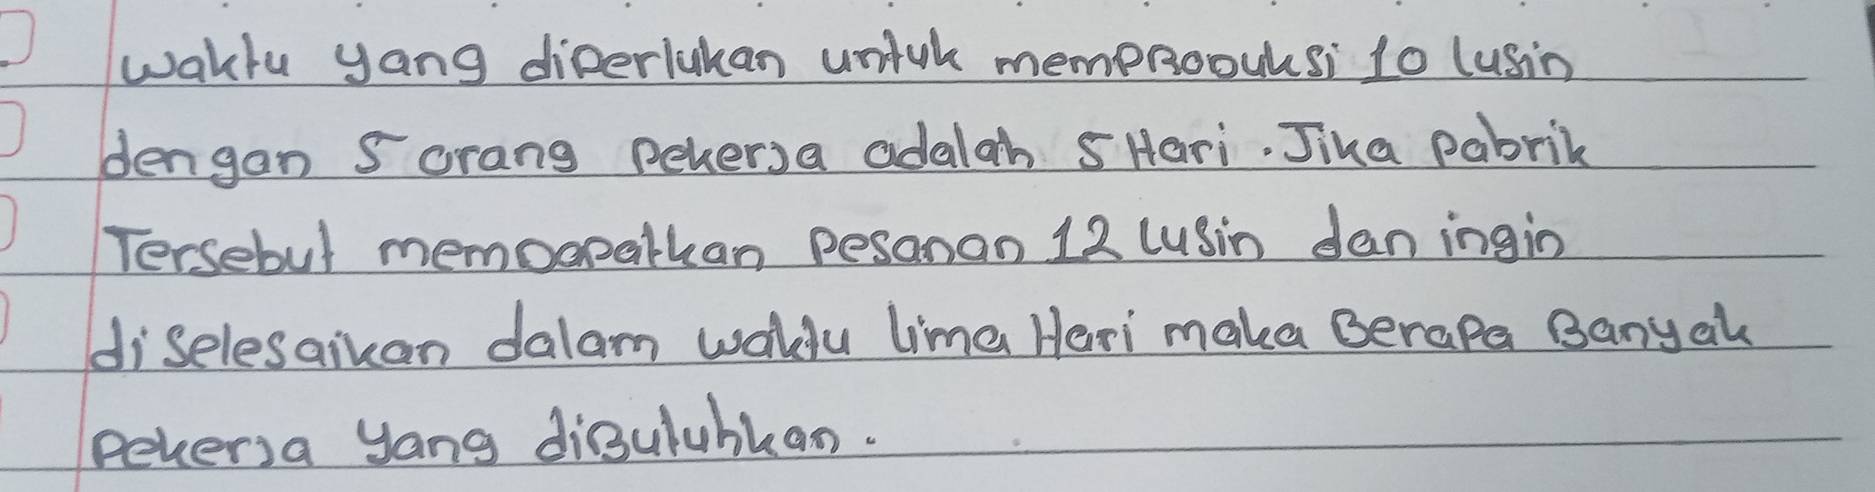 waktu yang diperlukan untuk memproduksi 10 lusin
dengan 5 orang pekerja adalah 5 Hari. Jika pabrik
Tersebut mempdapatkan pesanan 12 lusin dan ingin
diselesaikan dalam waktu lima Hari maka Berapa Banyak
pekerja yang diButuhkan.